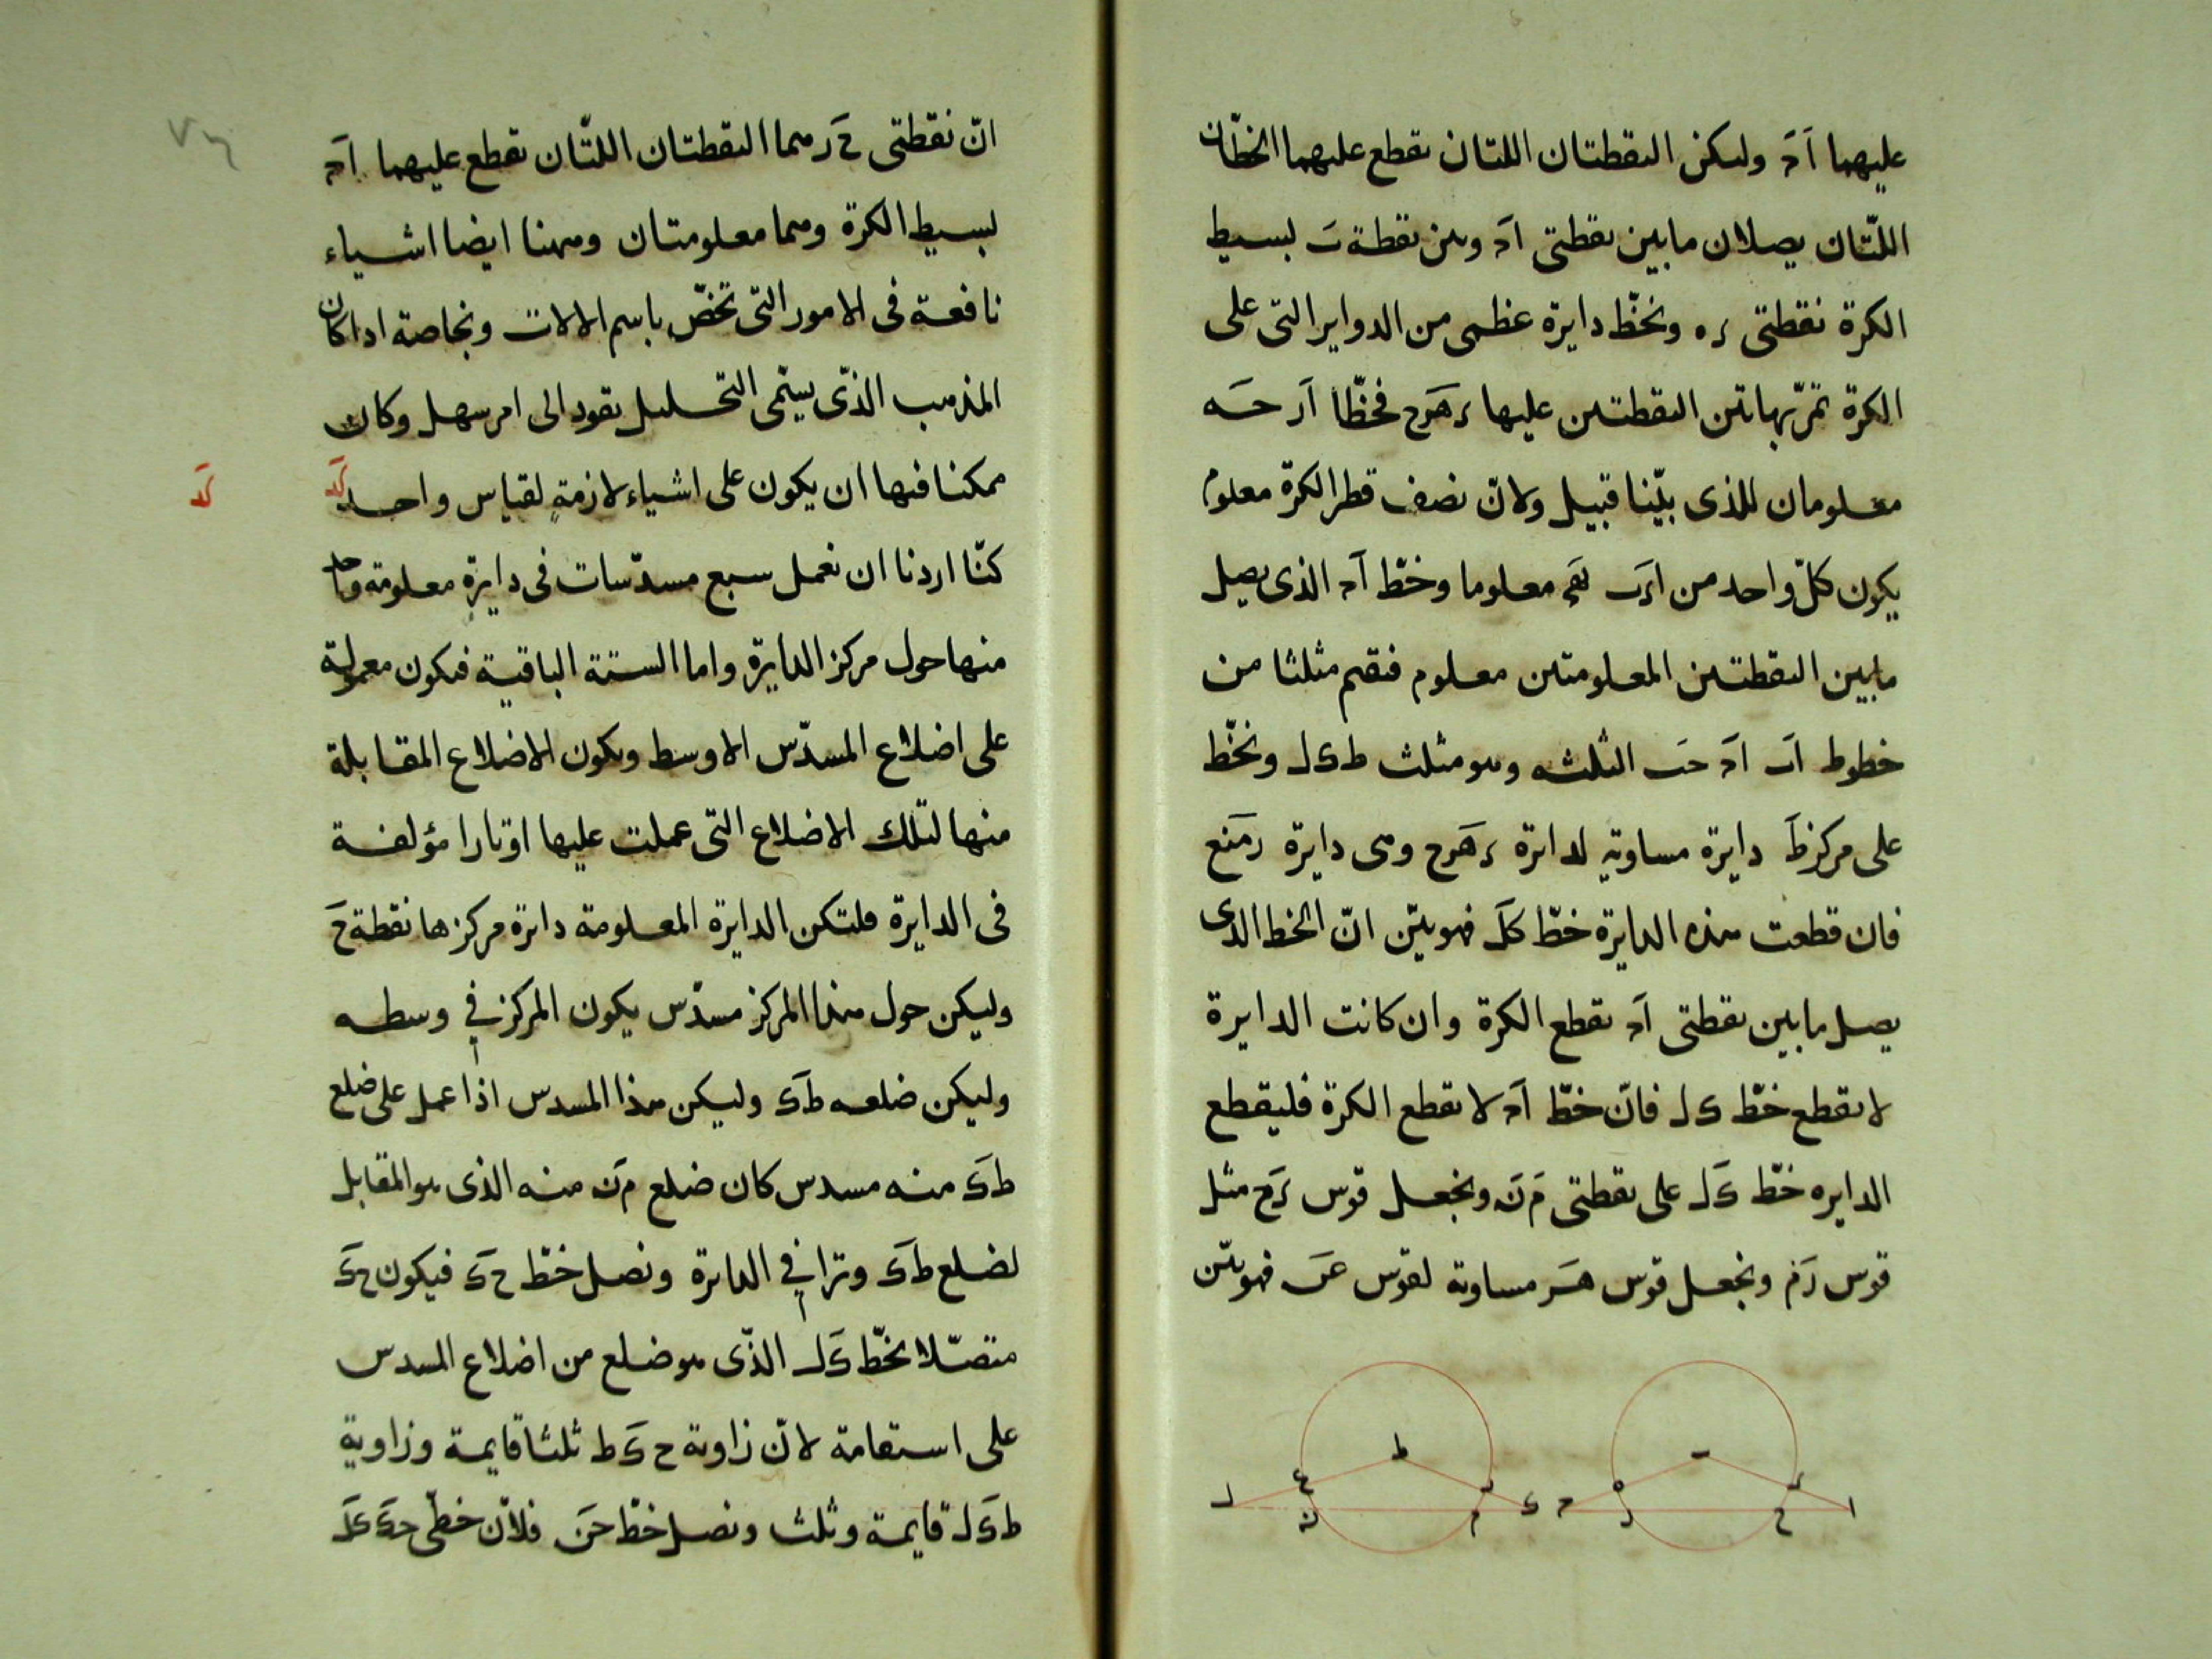 عليهما اَحَ وليكن النقطتان اللتان تقطع عليهما الخطّان
اللتّان يصلان مابين نقطتى اَحَ وبين نقطة بَ لبسيط
الكرة نقطتى ره ونخّط دايرة عظمى من الدواير التى على
الكرة تمرّ بهاتين النقطتين عليها رهزح فخطّا اَر حَه
معلومان للذى بيّنا قبيل ولانّ نصف قطر الكرة معلوم
يكون كلّ واحد من معلوما وخطّ اَحَ الذى يصل
مابين النقطتين المعلومتين معلوم فنقيم مثلثا من
خطوط اَب اَحَ حَب الثلثه وهو مثلث طكل ونخّط
على مركز طَ دايرة مساوية لدائرة رهزح وهى دايرة رمنع
فان قطعت هذه الدايرة خطّ كلَ فهو بيّن انّ الخط الذى
يصل مابين نقطتى اَحَ تقطع الكرة وان كانت الدايرة
لا تقطع خطّ كل فانّ خطّ اَحَ لا تقطع الكرة فليقطع
الدايره خطّ كَل على نقطتى مَ نَ ونجعل قوس رَح مثل
قوس رَم ونجعل قوس هَز مساوية لقوس عَن فهو بيّن
ط
ع
ر
ل
ن
م
ك
ب
ه
ر
ح
ز
ح
ا
انّ نقطتى حَ زَ هما النقطتان اللتّان تقطع عليهما اَحَ
لبسيط الكرة وهما معلومتان وههنا ايضا اشياء
نافعة فى الامور التى تخصّ باسم الالات وبخاصة اذا كان
المذهب الذّى يسمّى التحليل يقود الى امر سهل وكان
ممكنا فيها ان يكون على اشياء لازمةٍ لقياس واحد كَد
كَد
كنّا اردنا ان نعمل سبع مسدّسات فى دايرة معلومة واحد
منها حول مركز الدايرة واما الستة الباقية فيكون معمولة
على اضلاع المسدّس الاوسط ويكون الاضلاع المقابلة
منها لتلك الاضلاع التى عملت عليها اوتارا مؤلفة
فى الدايرة فلتكن الدايرة المعلومة دائرة مركزها نقطة حَ
وليكن حول هذا المركز مسدّس يكون المركز في وسطه
وليكن ضلعه طكَ وليكن هذا المسدس اذا عمل على ضلع
طكَ منه مسدس كان ضلع مَن منه الذى هو المقابل
لضلع طكَ وترا في الدائرة ونصل خطّ حكَ فيكون حكَ
متصّلا بخطّ كَل الذّى هو ضلع من اضلاع المسدس
على استقامة لانّ زاوية ح كَ ط ثلثا قايمة وزاوية
طكَل قايمة وثلث ونصل خطّ حَن فلانّ خطّى حكَ كَل